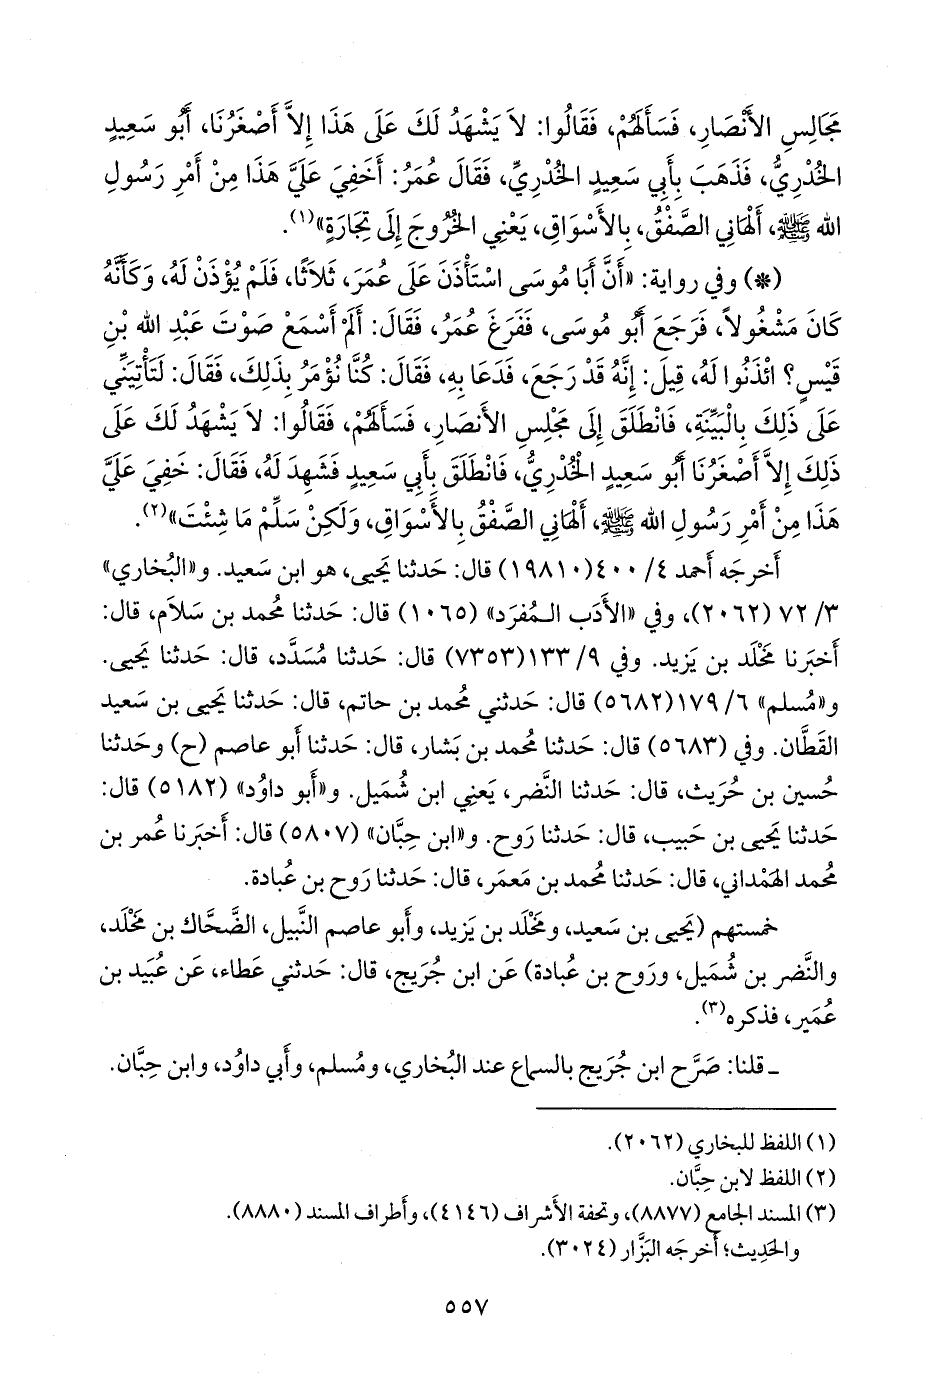 مَجَالِسِ الأَنْصَارِ، فَسَأَلَهُمْ، فَقَالُوا: لاَ يَشْهَدُ لَكَ عَلَى هَذَا إِلاَّ أَصْغَرُنَا، أَبُو سَعِيدٍ
الخُدْرِيُّ، فَذَهَبَ بِأَبِي سَعِيدٍ الخُدْرِيِّ، فَقَالَ عُمَرُ: أَخَفِيَ عَلَيَّ هَذَا مِنْ أَمْرِ رَسُولِ
الله ﷺ، أَلْهَانِي الصَّفْقُ، بِالأَسْوَاقِ، يَعْنِي الخُرُوجَ إِلَى تِجَارَةٍ»(١).
(*) وفي رواية: «أَنَّ أَبَا مُوسَى اسْتَأْذَنَ عَلَى عُمَرَ، ثَلاَثًا، فَلَمْ يُؤْذَنْ لَهُ، وَكَأَنَّهُ
كَانَ مَشْغُولاً، فَرَجَعَ أَبُو مُوسَى، فَفَرَغَ عُمَرُ، فَقَالَ: أَلَمْ أَسْمَعْ صَوْتَ عَبْدِ الله بْنِ
قَيْسٍ؟ ائْذَنُوا لَهُ، قِيلَ: إِنَّهُ قَدْ رَجَعَ، فَدَعَا بِهِ، فَقَالَ: كُنَّا نُؤْمَرُ بِذَلِكَ، فَقَالَ: لَتَأْتِيَنِّي
عَلَى ذَلِكَ بِالْبَيِّنَةِ، فَانْطَلَقَ إِلَى مَجْلِسِ الأَنصَارِ، فَسَأَلَهُمْ، فَقَالُوا: لاَ يَشْهَدُ لَكَ عَلَى
ذَلِكَ إِلاَّ أَصْغَرُنَا أَبُو سَعِيدٍ الْخُدْرِيُّ، فَانْطَلَقَ بِأَبِي سَعِيدٍ فَشَهِدَ لَهُ، فَقَالَ: خَفِيَ عَلَيَّ
هَذَا مِنْ أَمْرِ رَسُولِ الله ﷺ، أَلْهَانِي الصَّفْقُ بِالأَسْوَاقِ، وَلَكِنْ سَلِّمْ مَا شِئْتَ»(٢).
أَخرجَه أَحمد ٤/ ٤٠٠(١٩٨١٠) قال: حَدثنا يَحيى، هو ابن سَعيد. و«البُخاري»
٣/ ٧٢ (٢٠٦٢)، وفي «الأَدَب الـمُفرَد» (١٠٦٥) قال: حَدثنا مُحمد بن سَلاَم، قال:
أَخبَرنا مَخْلَد بن يَزيد. وفي ٩/ ١٣٣(٧٣٥٣) قال: حَدثنا مُسَدَّد، قال: حَدثنا يَحيى.
و«مُسلم» ٦/ ١٧٩(٥٦٨٢) قال: حَدثني مُحمد بن حاتم، قال: حَدثنا يَحيى بن سَعيد
القَطَّان. وفي (٥٦٨٣) قال: حَدثنا مُحمد بن بَشار، قال: حَدثنا أَبو عاصم (ح) وحَدثنا
حُسين بن حُرَيث، قال: حَدثنا النَّضر، يَعني ابن شُمَيل. و«أَبو داوُد» (٥١٨٢) قال:
حَدثنا يَحيى بن حَبيب، قال: حَدثنا رَوح. و«ابن حِبَّان» (٥٨٠٧) قال: أَخبَرنا عُمر بن
مُحمد الهَمْداني، قال: حَدثنا مُحمد بن مَعمَر، قال: حَدثنا رَوح بن عُبادة.
خمستهم (يَحيى بن سَعيد، ومَخْلَد بن يَزيد، وأَبو عاصم النَّبيل، الضَّحَّاك بن مَخْلَد،
والنَّضر بن شُمَيل، ورَوح بن عُبادة) عَن ابن جُرَيج، قال: حَدثني عَطاء، عَن عُبَيد بن
عُمَير، فذكره(٣).
ـ قلنا: صَرَّح ابن جُرَيج بالسماع عند البُخاري، ومُسلم، وأَبي داوُد، وابن حِبَّان.
(١) اللفظ للبخاري (٢٠٦٢).
(٢) اللفظ لابن حِبَّان.
(٣) المسند الجامع (٨٨٧٧)، وتحفة الأشراف (٤١٤٦)، وأطراف المسند (٨٨٨٠).
والحَدِيث؛ أَخرجَه البَزَّار (٣٠٢٤).
٥٥٧